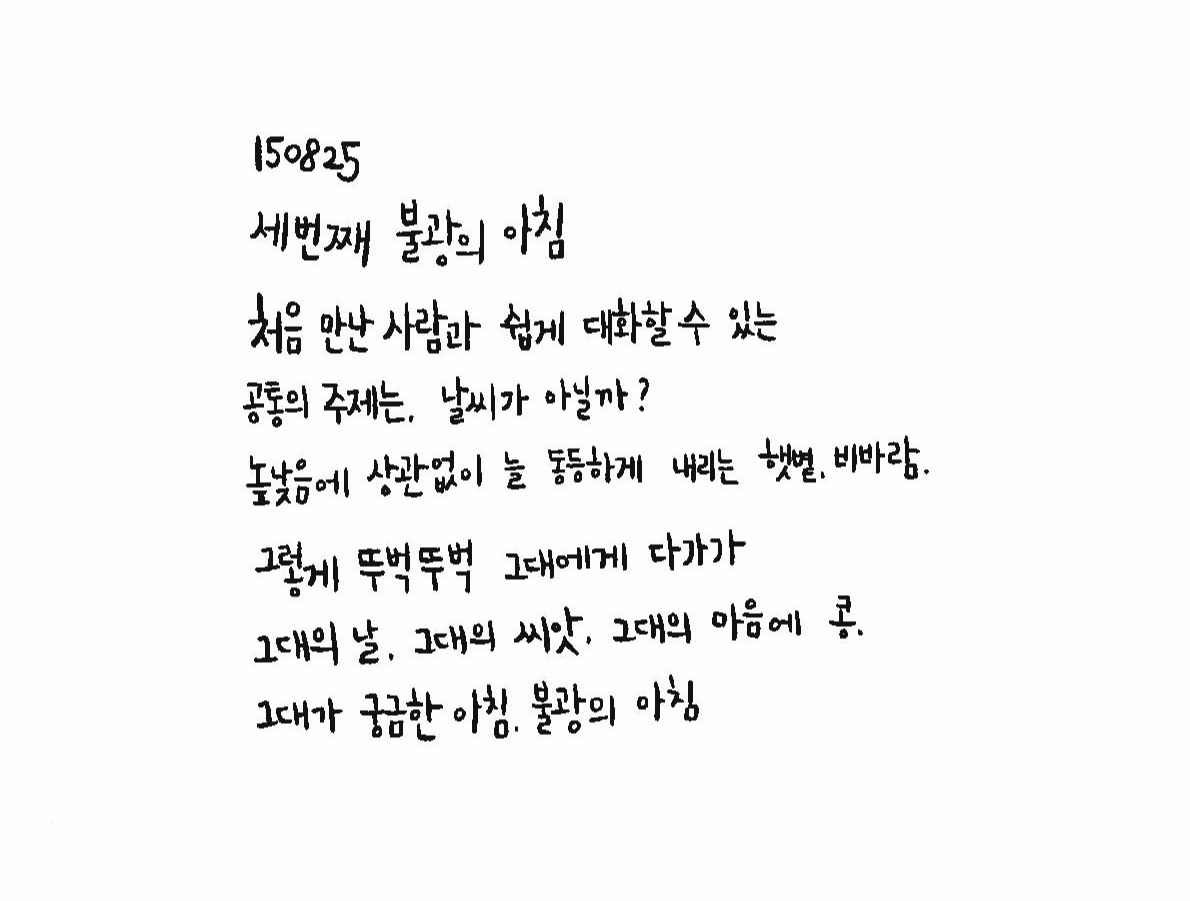 150825
세번째 불광의 아침
처음 만난 사람과 쉽게 대화할 수 있는
공통의 주제는, 날씨가 아닐까?
높낮음에 상관없이 늘 동등하게 내리는 햇볕, 비바람.
그렇게 뚜벅뚜벅 그대에게 다가가
그대의 날, 그대의 씨앗, 그대의 마음에 콩.
그대가 궁금한 아침, 불광의 아침